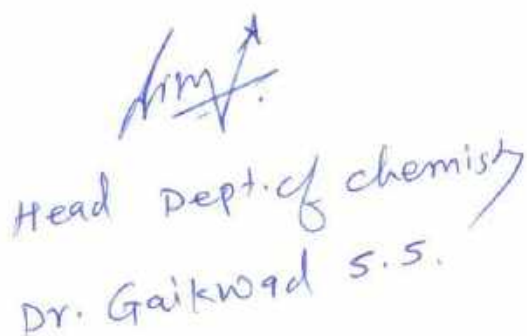 Head Dept. of chemistry
Dr. Gaikwad S.S.